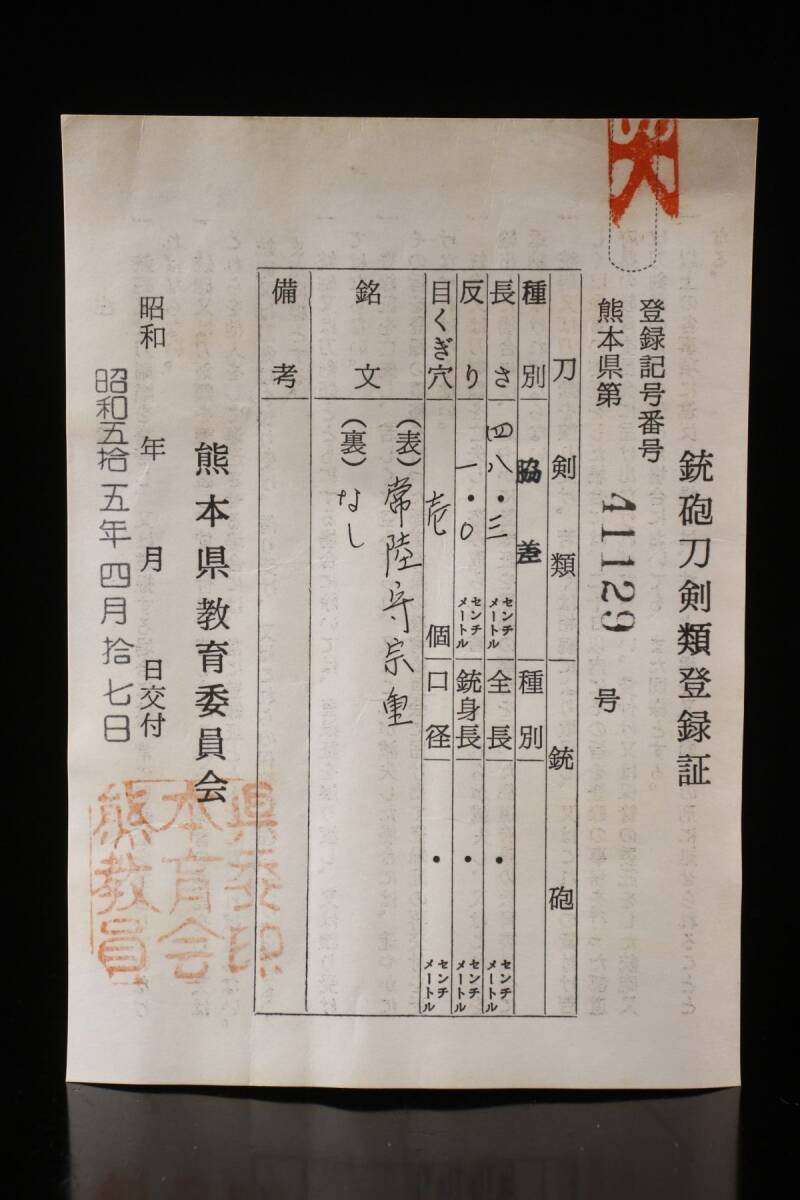 銃砲刀剣類登録証
登録記号番号
熊本県第 41129 号
刀剣類
種別 脇差
長さ 四八・三 センチメートル
反り 一・〇 センチメートル
目くぎ穴 壱 個
銃砲
種別
全長 ・ センチメートル
銃身長 ・ センチメートル
口径 ・ センチメートル
銘文
(表) 常陸守宗重
(裏) なし
備考
熊本県教育委員会
昭和 年 月 日交付
昭和五拾五年四月拾七日